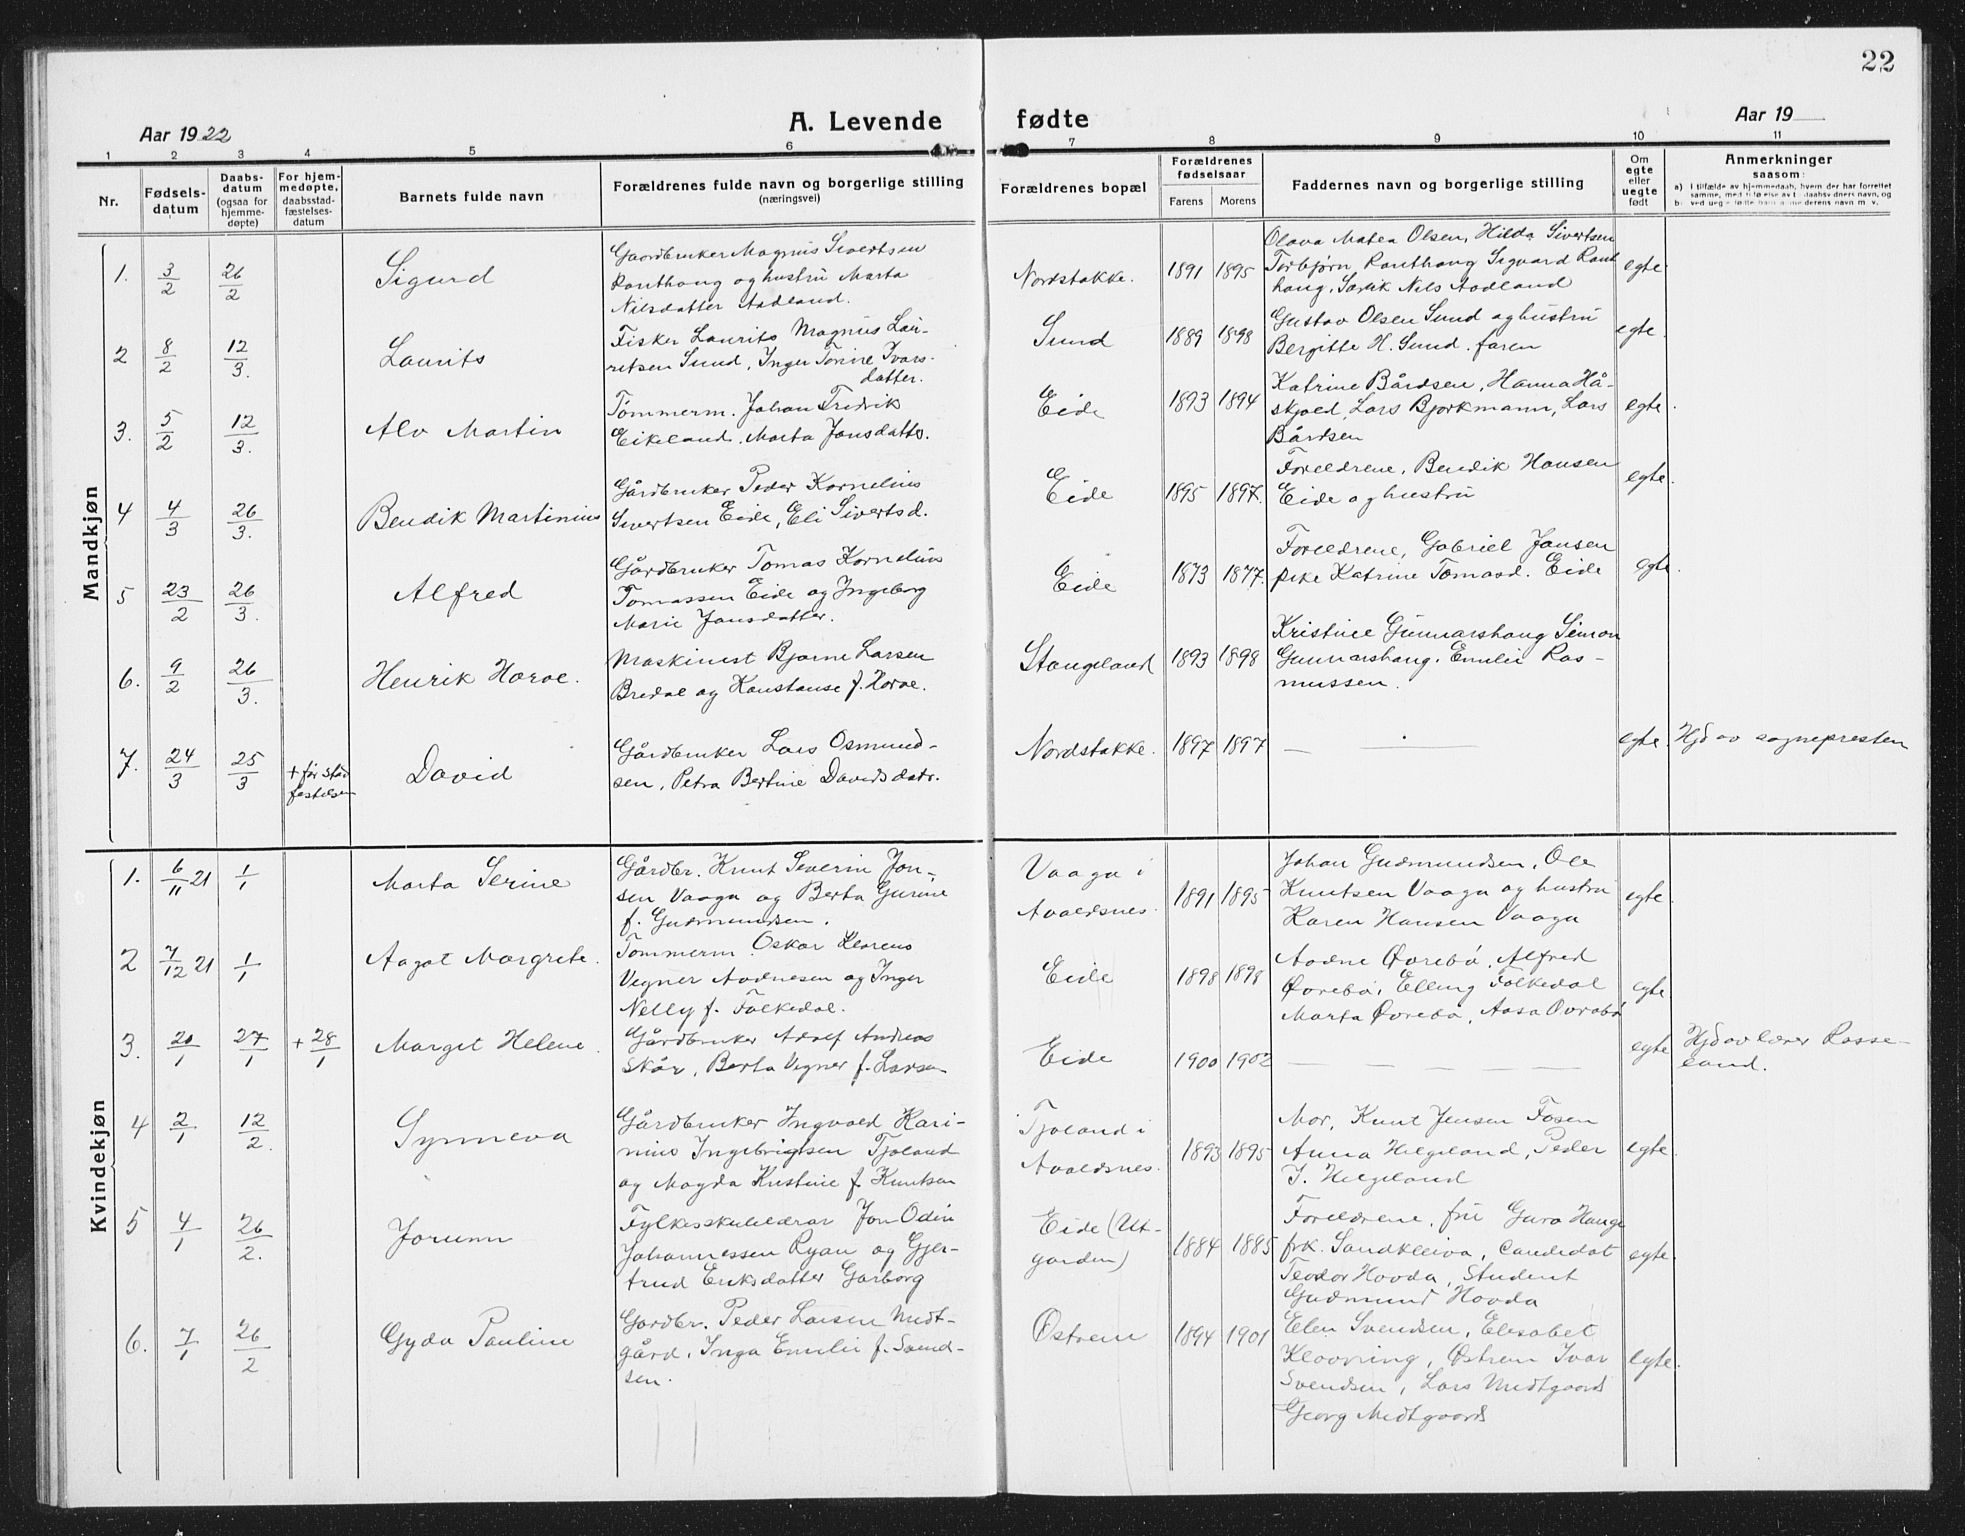 22
Aar 1922
A. Levende fødte
Aar 19
1 2 3 4 5 6 7 8 9 10 11
Nr.
Fødsels-
datum
Daabs-
datum
(ogsaa for
hjemme-
døpte)
For hjem-
medøpte,
daabsstad-
fæstelses-
datum
Barnets fulde navn
Forældrenes fulde navn og borgerlige stilling
(næringsvei)
Forældrenes bopæl
Forældrenes
fødselsaar
Farens Morens
Faddernes navn og borgerlige stilling
Om
egte
eller
uegte
født
Anmerkninger
saasom:
Mandkjøn
1. 3/2 26/2 Sigurd
Gaardbruker Magnus Sivertsen
Rønthaug og hustru Marta
Nilsdatter Aadland.
Nordstokke. 1891 1895
Olava Matea Olsen, Hilda Sivertsen
Torbjørn Rønthaug Sigvard Rønt
haug, Nils Aadland
egte
2 8/2 12/3. Laurits
Fisker Laurits Magnus Lau-
ritsen Sund, Inger Tonine Ivars-
datter.
Sund 1889 1898
Gustav Olsen Sund og hustru
Bergitte H. Sund. faren
egte.
3. 5/2 12/3. Alv Martin
Tømmerm. Johan Fredrik
Eikeland. Marta Jonsdattr.
Eide 1893 1894
Katrine Bårdsen, Hanna Hå-
skjold, Lars Bjørkmann, Lars
Bårdsen
egte.
4 4/3 26/3. Bendik Martinius
Gårdbruker Peder Kornelius
Sivertsen Eide, Eli Sivertsd.
Eide 1895 1897.
Foreldrene, Bendik Hansen
Eide og hustru
egte.
5 23/2 26/3. Alfred
Gårdbruker Tomas Kornelius
Tomassen Eide og Ingeborg
Marie Jonsdatter.
Eide 1873 1877.
Foreldrene, Gabriel Jansen
pike Katrine Tomasd. Eide
egte.
6. 9/2 26/3. Henrik Horve.
Maskinist Bjarne Larsen
Bredal og Konstanse f. Horve.
Stangeland 1893 1898
Kristine Gunnarshaug Simon
Gunnarshaug. Emilie Ras-
mussen.
7. 24/3 25/3
+ før stad
festelsen
David
Gårdbruker Lars Osmund-
sen, Petra Bertine Davidsdatr.
Nordstokke. 1897 1897
— —
egte. Hjd av sognepresten
Kvindekjøn
1. 6/11 21 1/1 Marta Serine
Gårdbr. Knut Severin Jon-
sen Vaaga og Berta Gurine
f. Gudmundsen.
Vaaga i
Avaldsnes. 1891 1895
Johan Gudmundsen, Ole
Knutsen Vaaga og hustru
Karen Hansen Vaaga
egte.
2 7/12 21 1/1 Aagot Margrete.
Tømmerm. Oskar Klarens
Vegner Aadnesen og Inger
Nelly f. Folkedal.
Eide 1898 1898
Aadne Øvrebø, Alfred
Øvrebø, Elling Folkedal
Marta Øvrebø, Aasa Øvrebø
egte.
3. 20/1 27/1 + 28/1 Marget Helene.
Gårdbruker Adolf Andreas
Skår, Berta Vegner f. Larsen
Eide 1900 1902
— — — — —
egte
Hjd av lærer Rosse-
land.
4 2/1 12/2. Synneva
Gårdbruker Ingvald Kari-
nius Ingebrigtsen Tjoland
og Magda Kristine f. Knutsen
Tjoland i
Avaldsnes. 1893 1895
Mor, Knut Jensen Fosen
Anna Helgeland, Peder
J. Helgeland
egte.
5 4/1 26/2. Jorunn
Fylkesskulelærar Jon Odin
Johannessen Ryan og Gjer-
trud Eriksdatter Garborg
Eide (Ut-
garden) 1884 1885
Foreldrene, fru Guro Hauge
frk. Sandkleiva, Candidat
Teodor Hovda, Student
Gudmund Hovda
egte.
6. 7/1 26/2 Gyda Pauline
Gardbr. Peder Larsen Midt-
gård, Inga Emilie f. Svend-
sen.
Østrem 1894 1901
Elen Svendsen, Elisabet
Klovning, Østrem Ivar
Svendsen, Lars Midtgaard
Georg Midtgaard
egte.